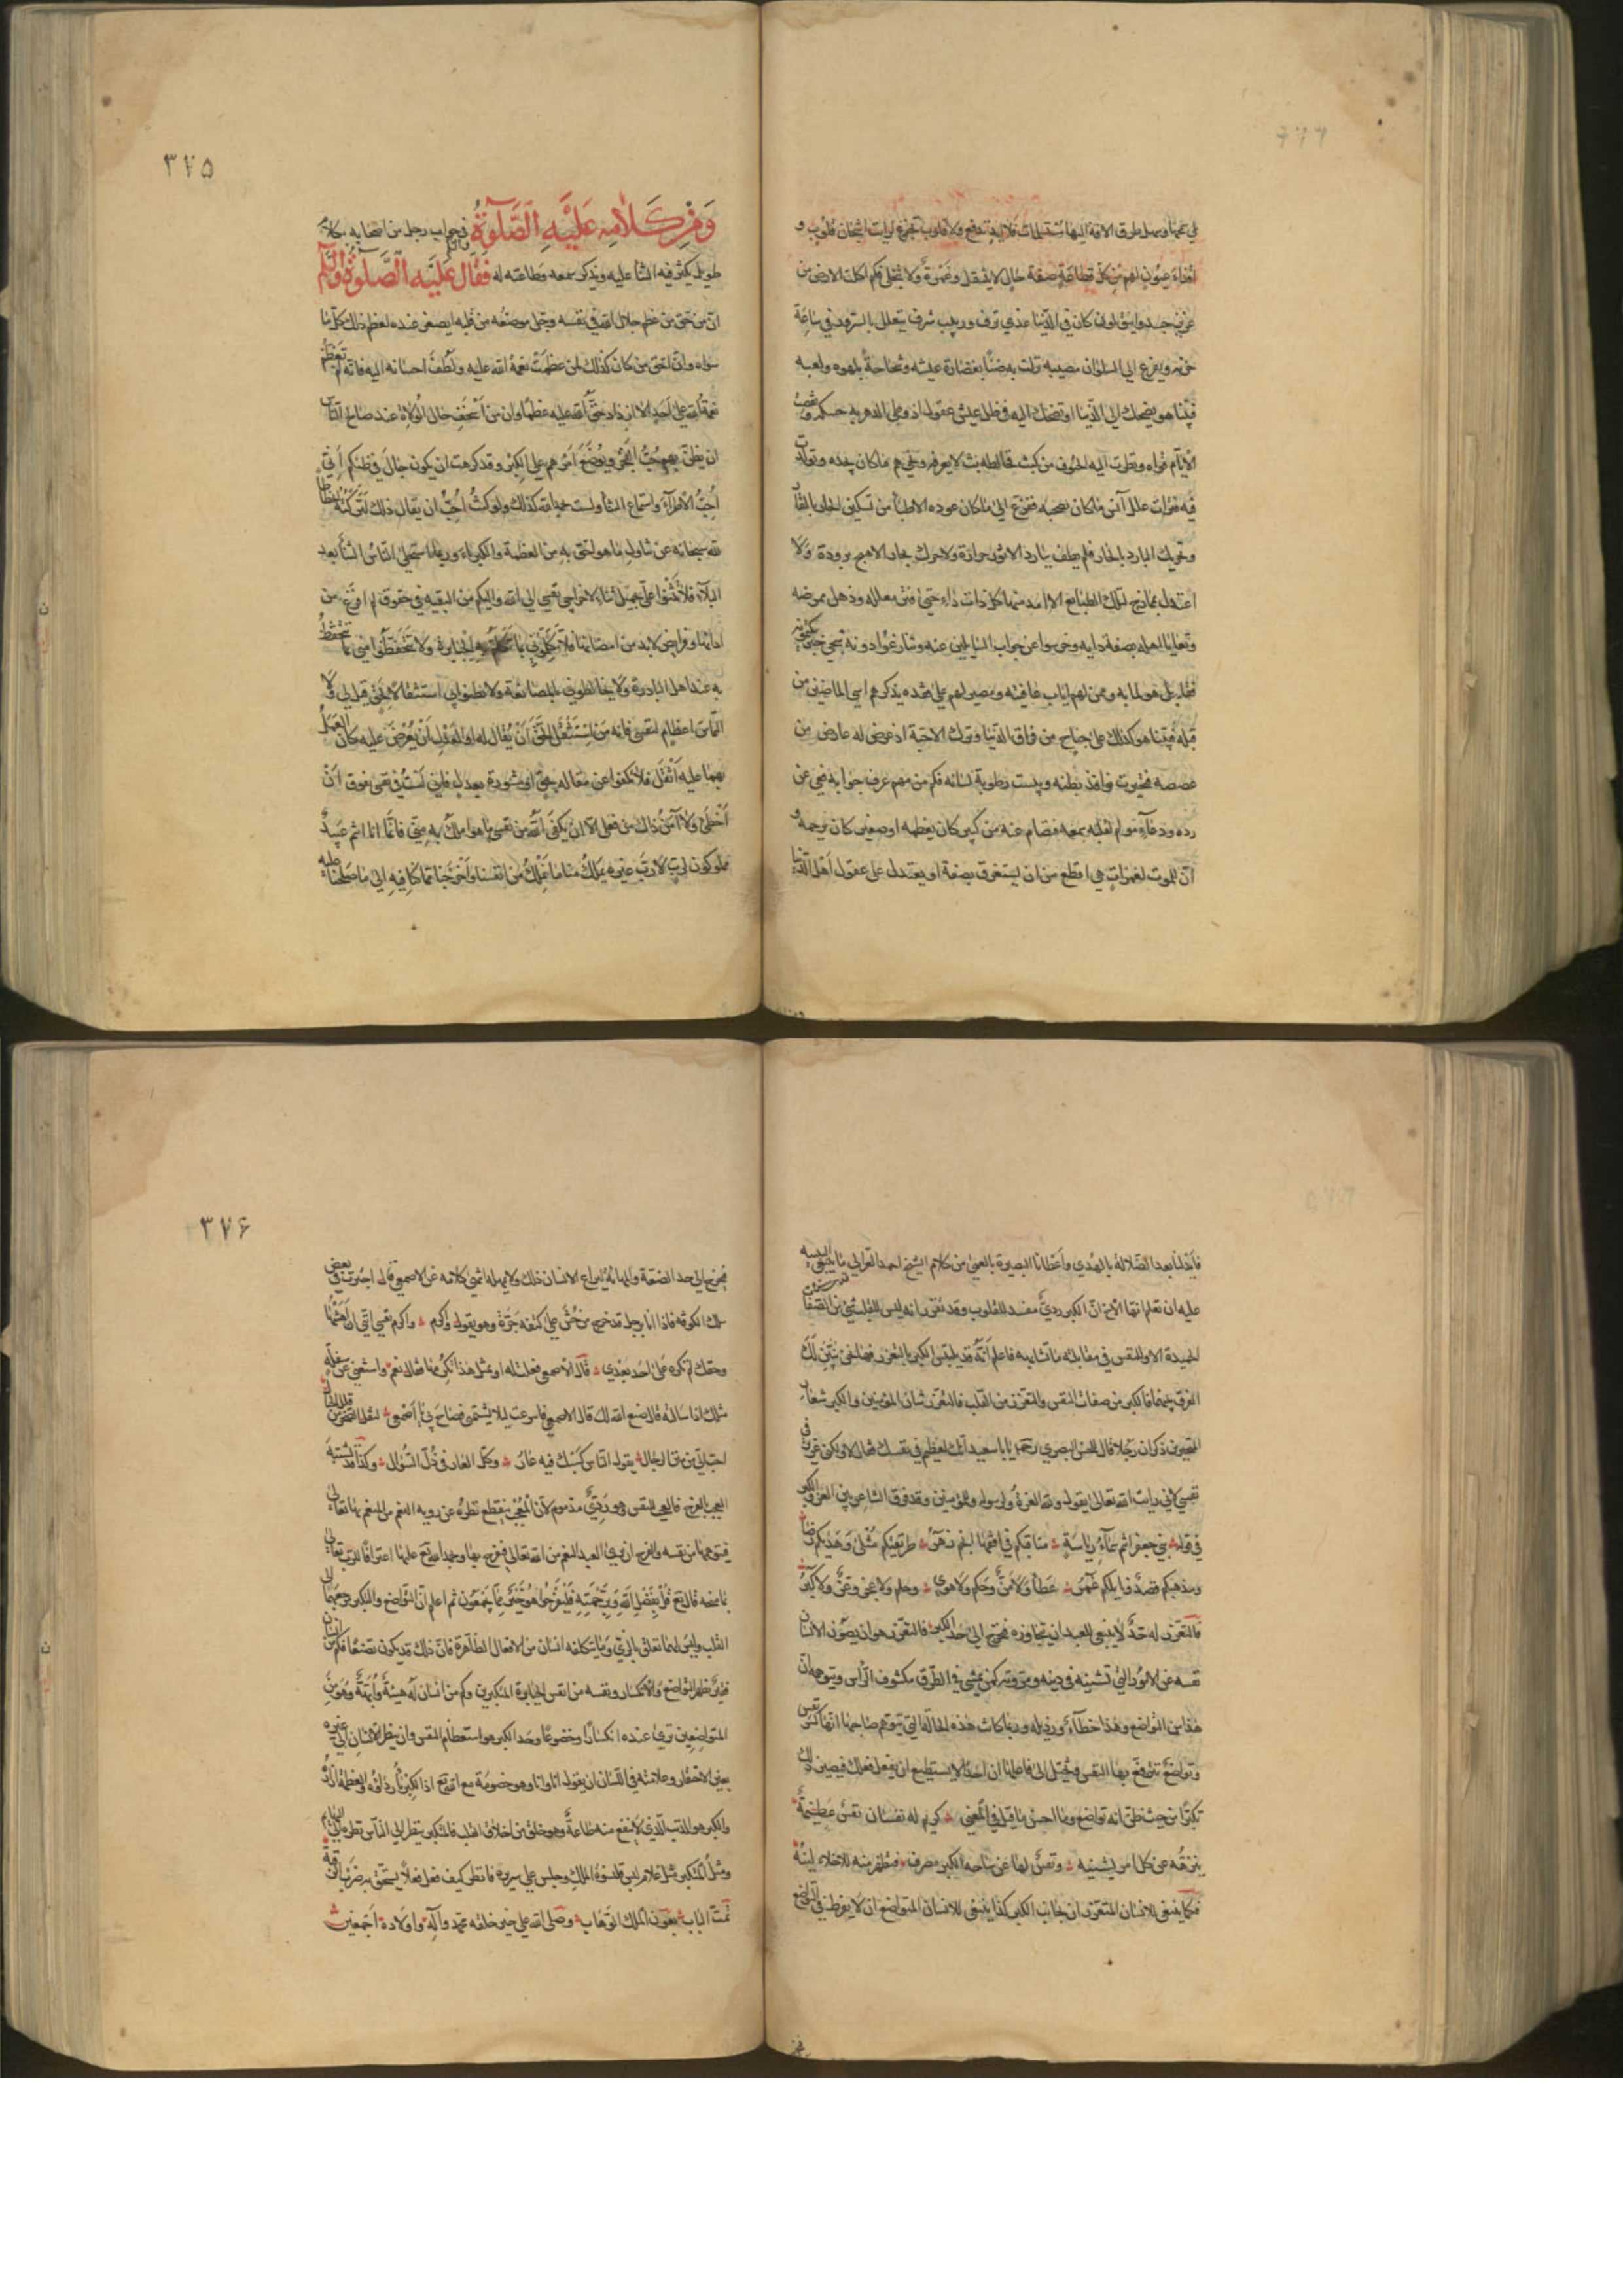 على عجمها وسهل طرق الآفة اليها مستسلمات فلا ايد تدفع ولا قلوب تجزع لرايت اشجان قلوب و
اقذاء عيون لهم من كل فظاعة صفة حال لا ينتقل وغمرة ولا تنجلي فكم اكلت الارض من
عزيز جسد وانيق لون كان في الدنيا غذي ترف وربيب شرف يتعلل بالسرور في ساعة
حزنه ويفزع الى السلوان مصيبة نزلت به ضنا بغضارة عيشه وشحاحة بلهوه ولعبه
فبينا هو يضحك الى الدنيا او تضحك اليه في ظل عيش غفول اذ وطئ الدهر به حسكه ونقضت
الايام قواه ونظرت اليه الحتوف من كثب فخالطه بث لا يعرفه ونجي هم ما كان يجده وتولدت
فيه فترات علل آنس ما كان بصحته ففزع الى ما كان عوده الاطباء من تسكين الحار بالقار
وتحريك البارد بالحار فلم يطف ببارد الا ثور حرارة ولا حرك بحار الا هيج برودة ولا
اعتدل بمازج لتلك الطبائع الا امد منها كل ذات داء حتى فتر معلله وذهل ممرضه
وتعايا اهله بصفة دايه وخرسوا عن جواب السايلين عنه وتنازعوا دونه شجي خبر يكتمونه
فقايل هو لما به وممن لهم اياب عافيته ومصبر لهم على فقده يذكرهم اسى الماضين من
قبله فبينا هو كذلك على جناح من فراق الدنيا وترك الاحبة اذ عرض له عارض من
غصصه فتحيرت نوافذ بطنه ويبست رطوبة لسانه فكم من مهم عرف جوابه فعي عن
رده ودعاء مولم لقلبه سمعه فتصام عنه من كبير كان يعظمه او صغير كان يرحمه و
ان للموت لغمرات هي افظع من ان يستغرق بصفة او يعتدل على عقول اهل الدنيا
٣٧٥
وَمِنْ كَلَامِهِ عَلَيْهِ الصَّلٰوةُ والسلم في جواب رجل من اصحابه بكلام
طويل يكثر فيه الثنا عليه ويذكر سمعه وطاعته له فقال عَلَيْهِ الصَّلٰوة والسلم
ان من حق من عظم جلال الله في نفسه وجل موضعه من قلبه ان يصغر عنده لعظم ذلك كل ما
سواه وان احق من كان كذلك لمن عظمت نعمة الله عليه ولطف احسانه اليه فانه لم تعظم
نعمة الله على احد الا ازداد حق الله عليه عظما وان من اسخف حال الولاة عند صالح الناس
ان يظن بهم حب الفخر ويوضع امرهم على الكبر وقد كرهت ان يكون جال في ظنكم اني
احب الاطراء واستماع الثنا ولست بحمد الله كذلك ولو كنت احب ان يقال ذلك لتركته انحطاطا
لله سبحانه عن تناول ما هو احق به من العظمة والكبرياء وربما استحلى الناس الثناء بعد
البلاء فلا تثنوا علي بجميل ثناء لاخراجي نفسي الى الله واليكم من البقية في حقوق لم افرغ من
ادائها وفرايض لا بد من امضائها فلا تكلموني بما تكلم به الجبابرة ولا تتحفظوا مني بما يتحفظ
به عند اهل البادرة ولا تخالطوني بالمصانعة ولا تظنوا بي استثقالا في حق قيل لي ولا
التماس اعظام لنفسي فانه من استثقل الحق ان يقال له او العدل ان يعرض عليه كان العمل
بهما عليه اثقل فلا تكفوا عن مقالة بحق او مشورة بعدل فاني لست في نفسي بفوق ان
اخطئ ولا آمن ذاك من فعلي الا ان يكفي الله من نفسي ما هو املك به مني فانما انا وانتم عبيد
مملوكون لرب لا رب غيره يملك منا ما لا نملك من انفسنا واخرجنا مما كنا فيه الى ما صلحنا عليه
فابدلنا بعد الضلالة بالهدى واعطانا البصيرة بالعمى من كلام الشيخ احمد الغزالي
عليه ان تعلم ايها الاخ ان الكبر ردي مفسد للقلوب وقد تقرر انه ليس للقلب شي من الصفات
الحميدة الا وللنفس في مقابلته ما تشابهه فاعلم انه قد يلتبس الكبر بالتعزز فها نحن نبين لك
الفرق بينهما فالكبر من صفات النفس والتعزز من القلب فالتعزز شان المومنين والكبر شعار
المتجبرين ذكر ان رجلا قال للحسن البصري رحمه يا با سعيد انك لعظيم في نفسك فقال لا ولكني عزيز في
نفسي لاني رايت الله تعالى يقول ولله العزة ولرسوله وللمؤمنين وقد فرق الشاعر بين العز والكبر
في قوله
ومذهبكم قصد
فالتعزز له حد لا ينبغي للعبد ان يتجاوزه فيخرج الى حد الكبر فالتعزز هو ان يصون الانسان
نفسه عن الامور التي تشينه في دينه ومروته كمن يمشي في الطرق مكشوف الراس ويتوهم ان
هذا من التواضع وهذا خطاء ورذيلة وربما كانت هذه الحالة التي يتوهم صاحبها انها كسر نفس
وتواضع تترفع بها النفس
تكبرا من حيث ظن انه تواضع وما احسن ما قيل في المعنى كريم له نفسان نفس عظيمة
ينزهه عن كل امر يشينه ونفس لها عن ساحة الكبر مصرف فتظهر منه للاخلاء لينه
فكما ينبغي للانسان المتعزز ان يجانب الكبر كذا ينبغي للانسان المتواضع ان لا يفرط في التواضع
٣٧۶
فيخرج الى حد الضعة والمهانة
سكك الكوفة فاذا انا برجل قد خرج من حش على كتفه جرة وهو يقول واكرم نفسي انني ان اهنتها
وحقك لم تكرم على احد بعدي قال الاصمعي فقلت له او بمثل هذا تكرمها فقال نعم واستغني عن سفلة
مثلك اذا سالته قال صنع الله لك قال الاصمعي فاسرعت ليلا يشتمني فصاح بي يا اصمعي لنقل الصخر من قلل الجبال
احب الي من منن الرجال يقول الناس كسبك فيه عار وكل العار في ذل السؤال وكذا قد يشتبه
العجب بالفرح فالعجب للنفس وهو ردي مذموم لان المعجب ينقطع نظره عن روية المنعم
قال تع قُلْ بِفَضْلِ اللهِ وَبِرَحْمَتِهِ فَلْيَفْرَحُوا هُوَ خَيْرٌ مِمَّا يَجْمَعُونَ ثم اعلم ان التواضع والتكبر مرجعهما الى
القلب وليس لهما تعلق بالزي وما يتكلفه انسان من الافعال الظاهرة فان ذلك قد يكون تصنعا فكم من انسان
يظهر التواضع والانكسار ونفسه من انفس الجبابرة المتكبرين وكم من انسان له هيئة وابهة وهو من
المتواضعين ترى عنده انكسارا وخضوعا وحد الكبر هو استعظام النفس وان ينظر الانسان الى غيره
بعين الاحتقار وعلامته في اللسان ان يقول انا وانا وهو خصومة مع الله تع اذ الكبرياء رداؤه والعظمة ازاره
والكبر هو الذنب الذي لا ينفع منه طاعة وهو خلق من اخلاق القلب فالمتكبر ينظر الى الناس نظره الى البهايم
ومثل المتكبر مثل غلام لبس قلنسوة الملك وجلس على سريره فانظر كيف فعل فعلا يستحق به ضرب الرقبة
تمت الباب بعون الملك الوهاب وصلى الله على خير خلقه محمد وآله واولاده اجمعين